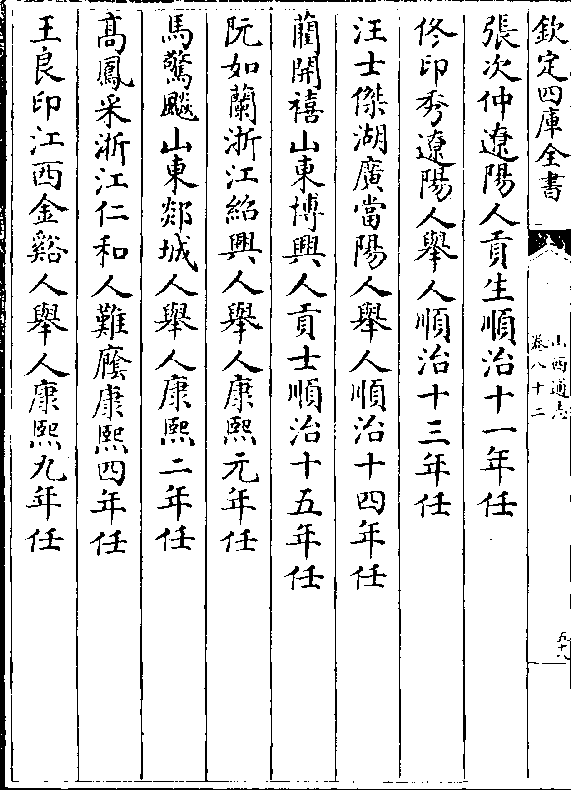 欽定四庫全書
山西通志
卷八十二
五十八
張次仲遼陽人貢生順治十一年任
佟印秀遼陽人舉人順治十三年任
汪士傑湖廣當陽人舉人順治十四年任
藺開禧山東博興人貢士順治十五年任
阮如蘭浙江紹興人舉人康熙元年任
馬驚颷山東郯城人舉人康熙二年任
高鳳采浙江仁和人難廕康熙四年任
王良印江西金谿人舉人康熙九年任